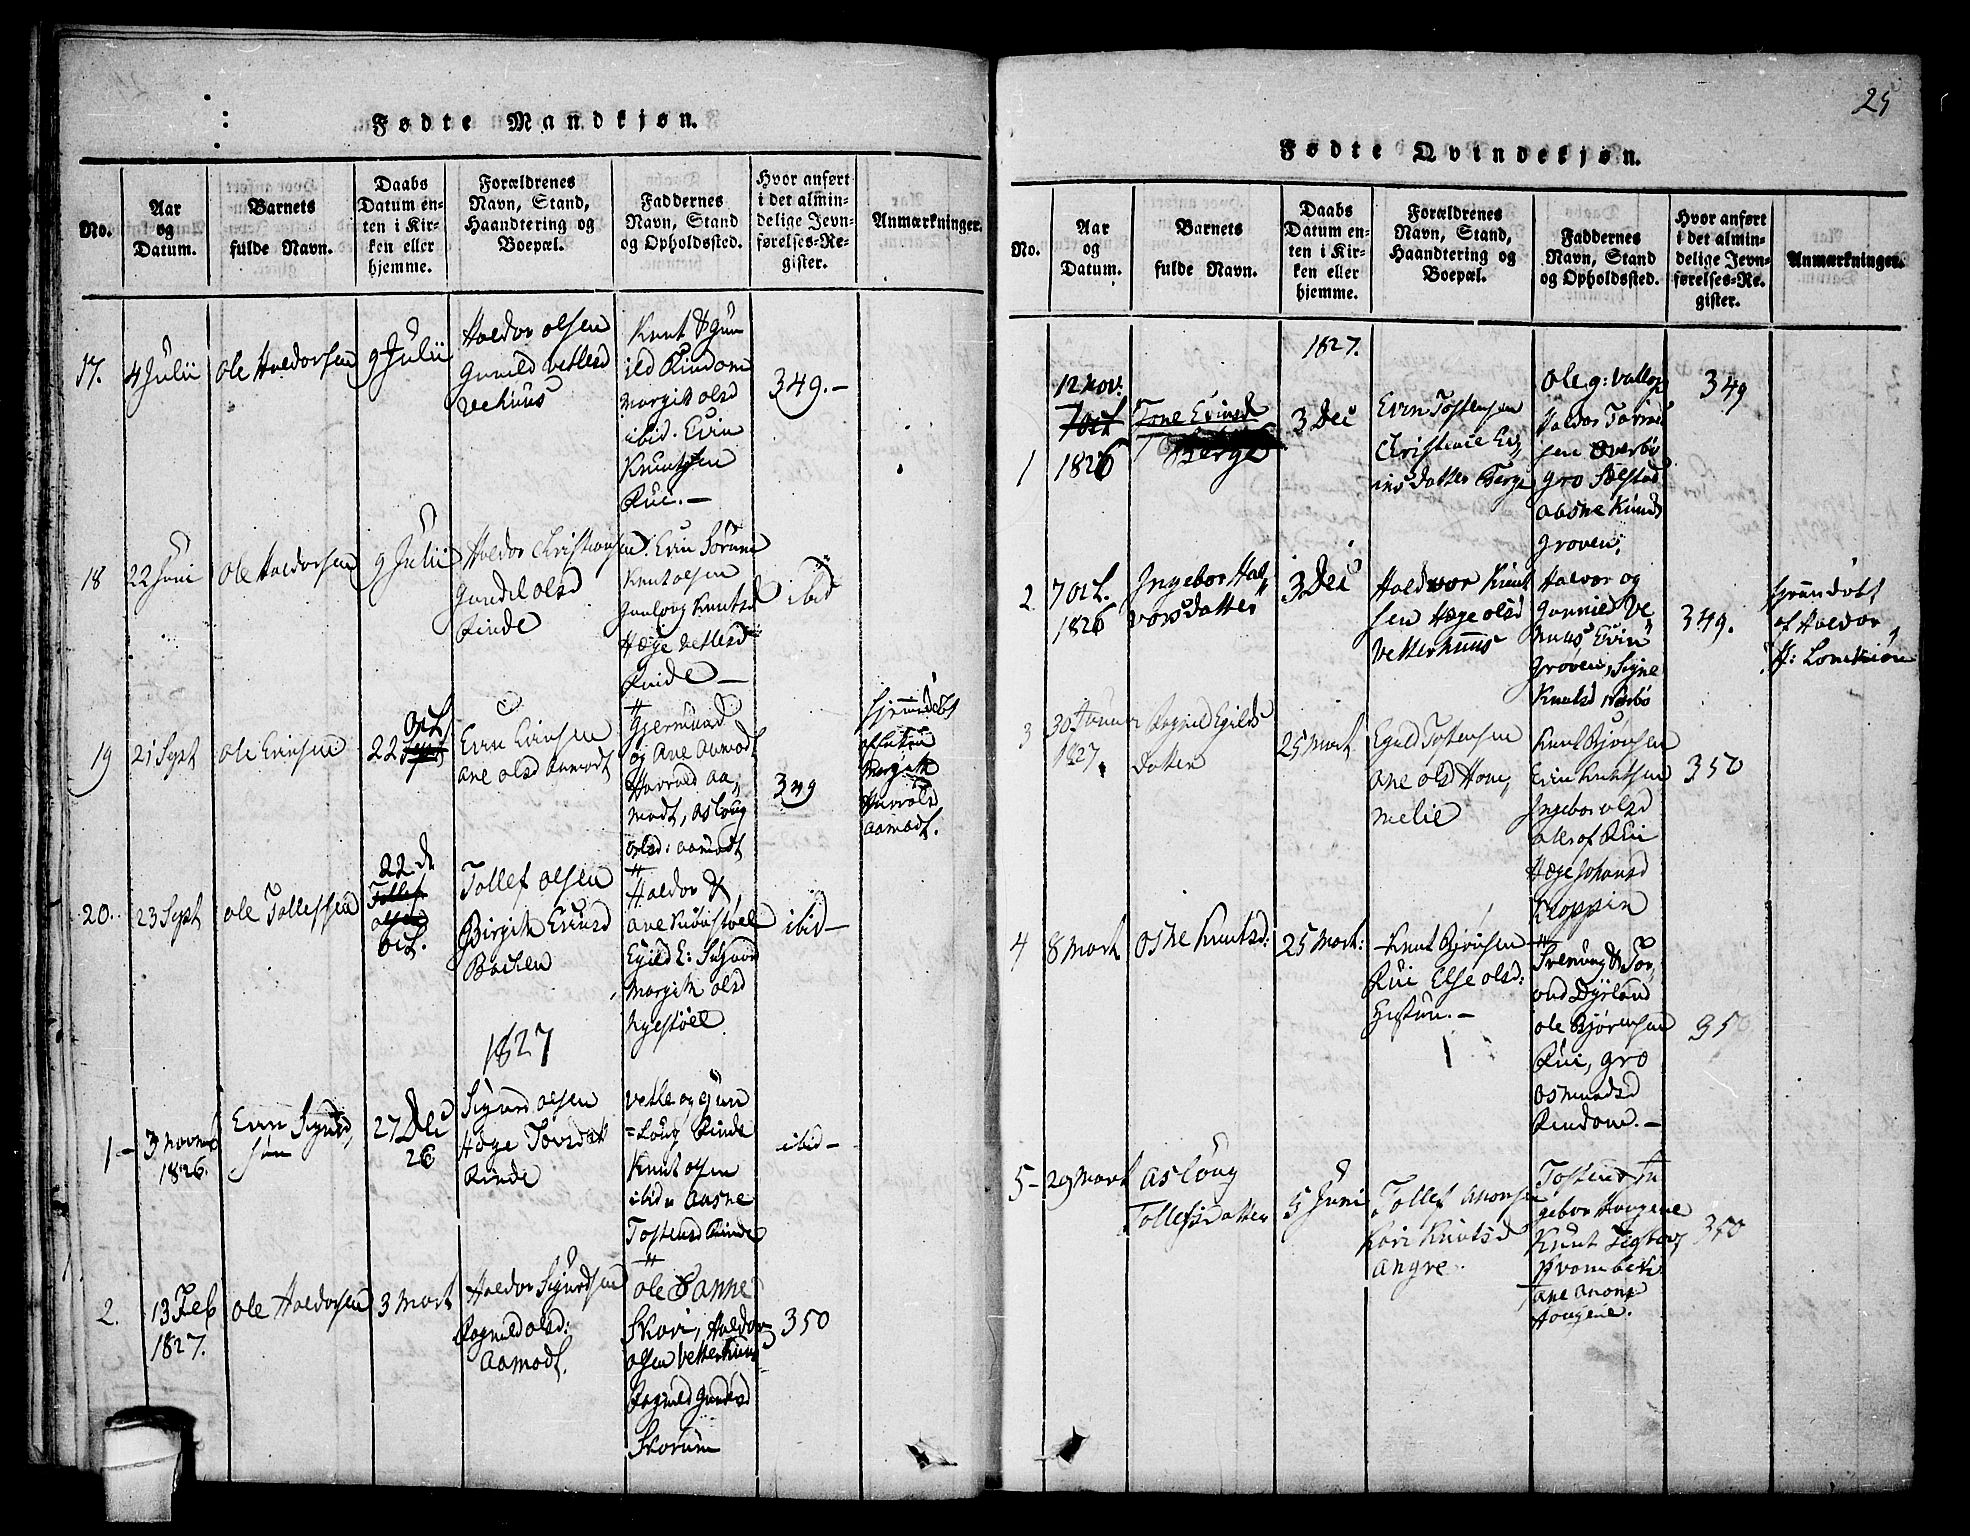 Fødte Mandkjøn.
No.
Aar
og
Datum.
Barnets
fulde Navn.
Daabs
Datum en-
ten i Kir-
ken eller
hjemme.
Forældrenes
Navn, Stand,
Haandtering og
Boepæl.
Faddernes
Navn, Stand
og Opholdssted.
Hvor anført
i det almin-
delige Jevn-
førelses-Re-
gister.
Anmærkninger.
17.
4 Julii
Ole Haldorsen
9 Julii
Haldor Olsen
Gunild Vetlesd
Vehuus
Knut & Gun
ild Rindom
Margit Olsd
ibid. Evin
Knutsen
Rui. —
349. —
18
22 Juni
Ole Haldorsen
9 Julii
Haldor Christiansen
Gundil Olsd
Rinde
Evin
Knut Olsen
Gunloug Knutsd
Hæge Vetlesd
Rinde —
ibid
19
21 Sept
Ole Evinsen
22 Oct
Evin Evinsen
Ane Olsd Aamodt
Gjermund
og Ane Aamodt
Harald Aa-
modt, Asloug
Olsd: Aamodt
349
Margith
Aamodt.
20.
23 Sept
Ole Tollefsen
22. d
Tollef
Olsen
Oct.
Tollef Olsen
Birgith Evinsd
Bachen
Haldor &
Ane
Egild E:
Margith Olsd
Nyestøel
ibid —
1827
1 —
3 Novemb
1826.
Evin Sigurd
søn
27 Dec
26
Sigurd Olsen
Hæge Torsdatt
Rinde
Vetle og Gun
=loug Rinde
Knut Olsen
ibid Aasne
Tostensd Rinde
ibid —
2.
13 Feb
1827.
Ole Haldorsen
3 Mart
Haldor Sigurdsen
Ragnild Olsd:
Aamodt.
Ole & Anne
Skori, Haldor
Olsen Vetterhuus
Ragnild Gundersd
Skorum
350
25
Fødte Qvindekjøn.
No.
Aar
og
Datum.
Barnets
fulde Navn.
Daabs
Datum en-
ten i Kir-
ken eller
hjemme.
Forældrenes
Navn, Stand,
Haandtering og
Boepæl.
Faddernes
Navn, Stand
og Opholdssted.
Hvor anført
i det almin-
delige Jevn-
førelses-Re-
gister.
Anmærkninger.
1827.
1
12 Nov.
7 Oct
1826
Tone Evinsd
Berge
3 Dec
Evin Tostensen
Christine Ev-
insdatter Berge
Ole G:
Haldor
sen Overbø
Gro
Aasne Knuds
Groven,
349
2.
7 Oct.
1826
Ingebor Hal-
vorsdatter
3 Dec
Haldvor Knut
sen Hæge Olsd
Vetterhuus
Halvor og
Gunnild Ve
huus, Evin
Groven, Signe
Knutsd
349.
af Haldor
3
30 Januar
1827.
Ragnild Egilds
datter
25 Mart.
Egild Tostensen
Ane Olsd Hom-
melie
Knut Bjørnsen
Evin Knutsen
Ingebor Olsd
alle af Rui
Hæge Johansd
Kloppin
350
4
8 Mart
Osne Knutsd:
25 Mart:
Knut Bjørnsen
Rui Else Olsd:
Sveinung & Tor-
ond Dyrland
Ole Bjørensen
Rui, Gro
Osmundsd
Rindom. —
350
5 —
29 Mart
Asloug
Tollefsdatter
5 Juni
Tollef Anonsen
Kari Knutsd
Angre.
Tosten & In
gebor Haugene
Knut
Ane Anons
Haugene.
350